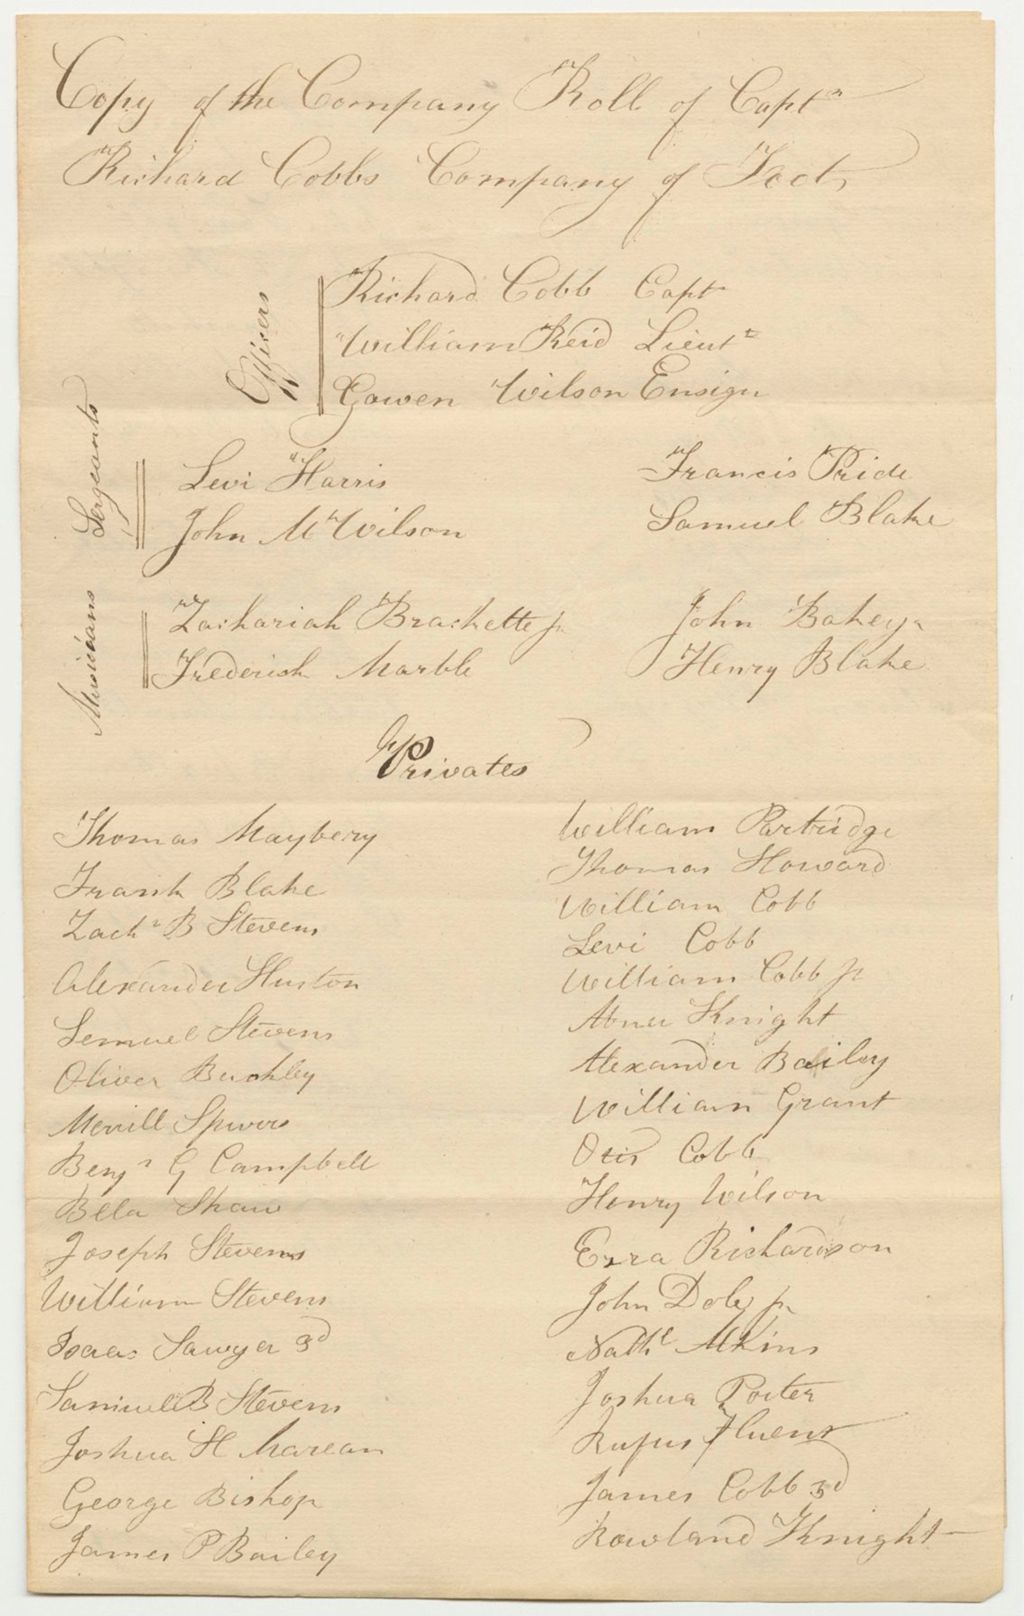 Copy of the Company Roll of Capt.n
Richard Cobbs Company of Foot,
Officers
Richard Cobb Capt
William Reid Lieut
Gowen Wilson Ensign
Sergeants
Levi Harris
John M Wilson
Francis Pride
Samuel Blake
Musicians
Zachariah Brackette jr
Frederick Marble
John Bakeyr
Henry Blake
Privates
Thomas Maybery
Frank Blake
Zachr B Stevens
Alexander Huston
Lemuel Stevens
Oliver Buckley
Merrill Spivers
Benjn G Campbell
Bela Shaw
Joseph Stevens
William Stevens
Isaac Sawyer 3d
Samuel B Stevens
Joshua H Marean
George Bishop
James P Bailey
William Partridge
Thomas Howard
William Cobb
Levi Cobb
William Cobb jr
Abner Knight
Alexander Bailey
William Grant
Otis Cobb
Henry Wilson
Ezra Richardson
John Dole jr
Nathl Atkins
Joshua Porter
Rufus Fluent
James Cobb 3d
Rowland Knight